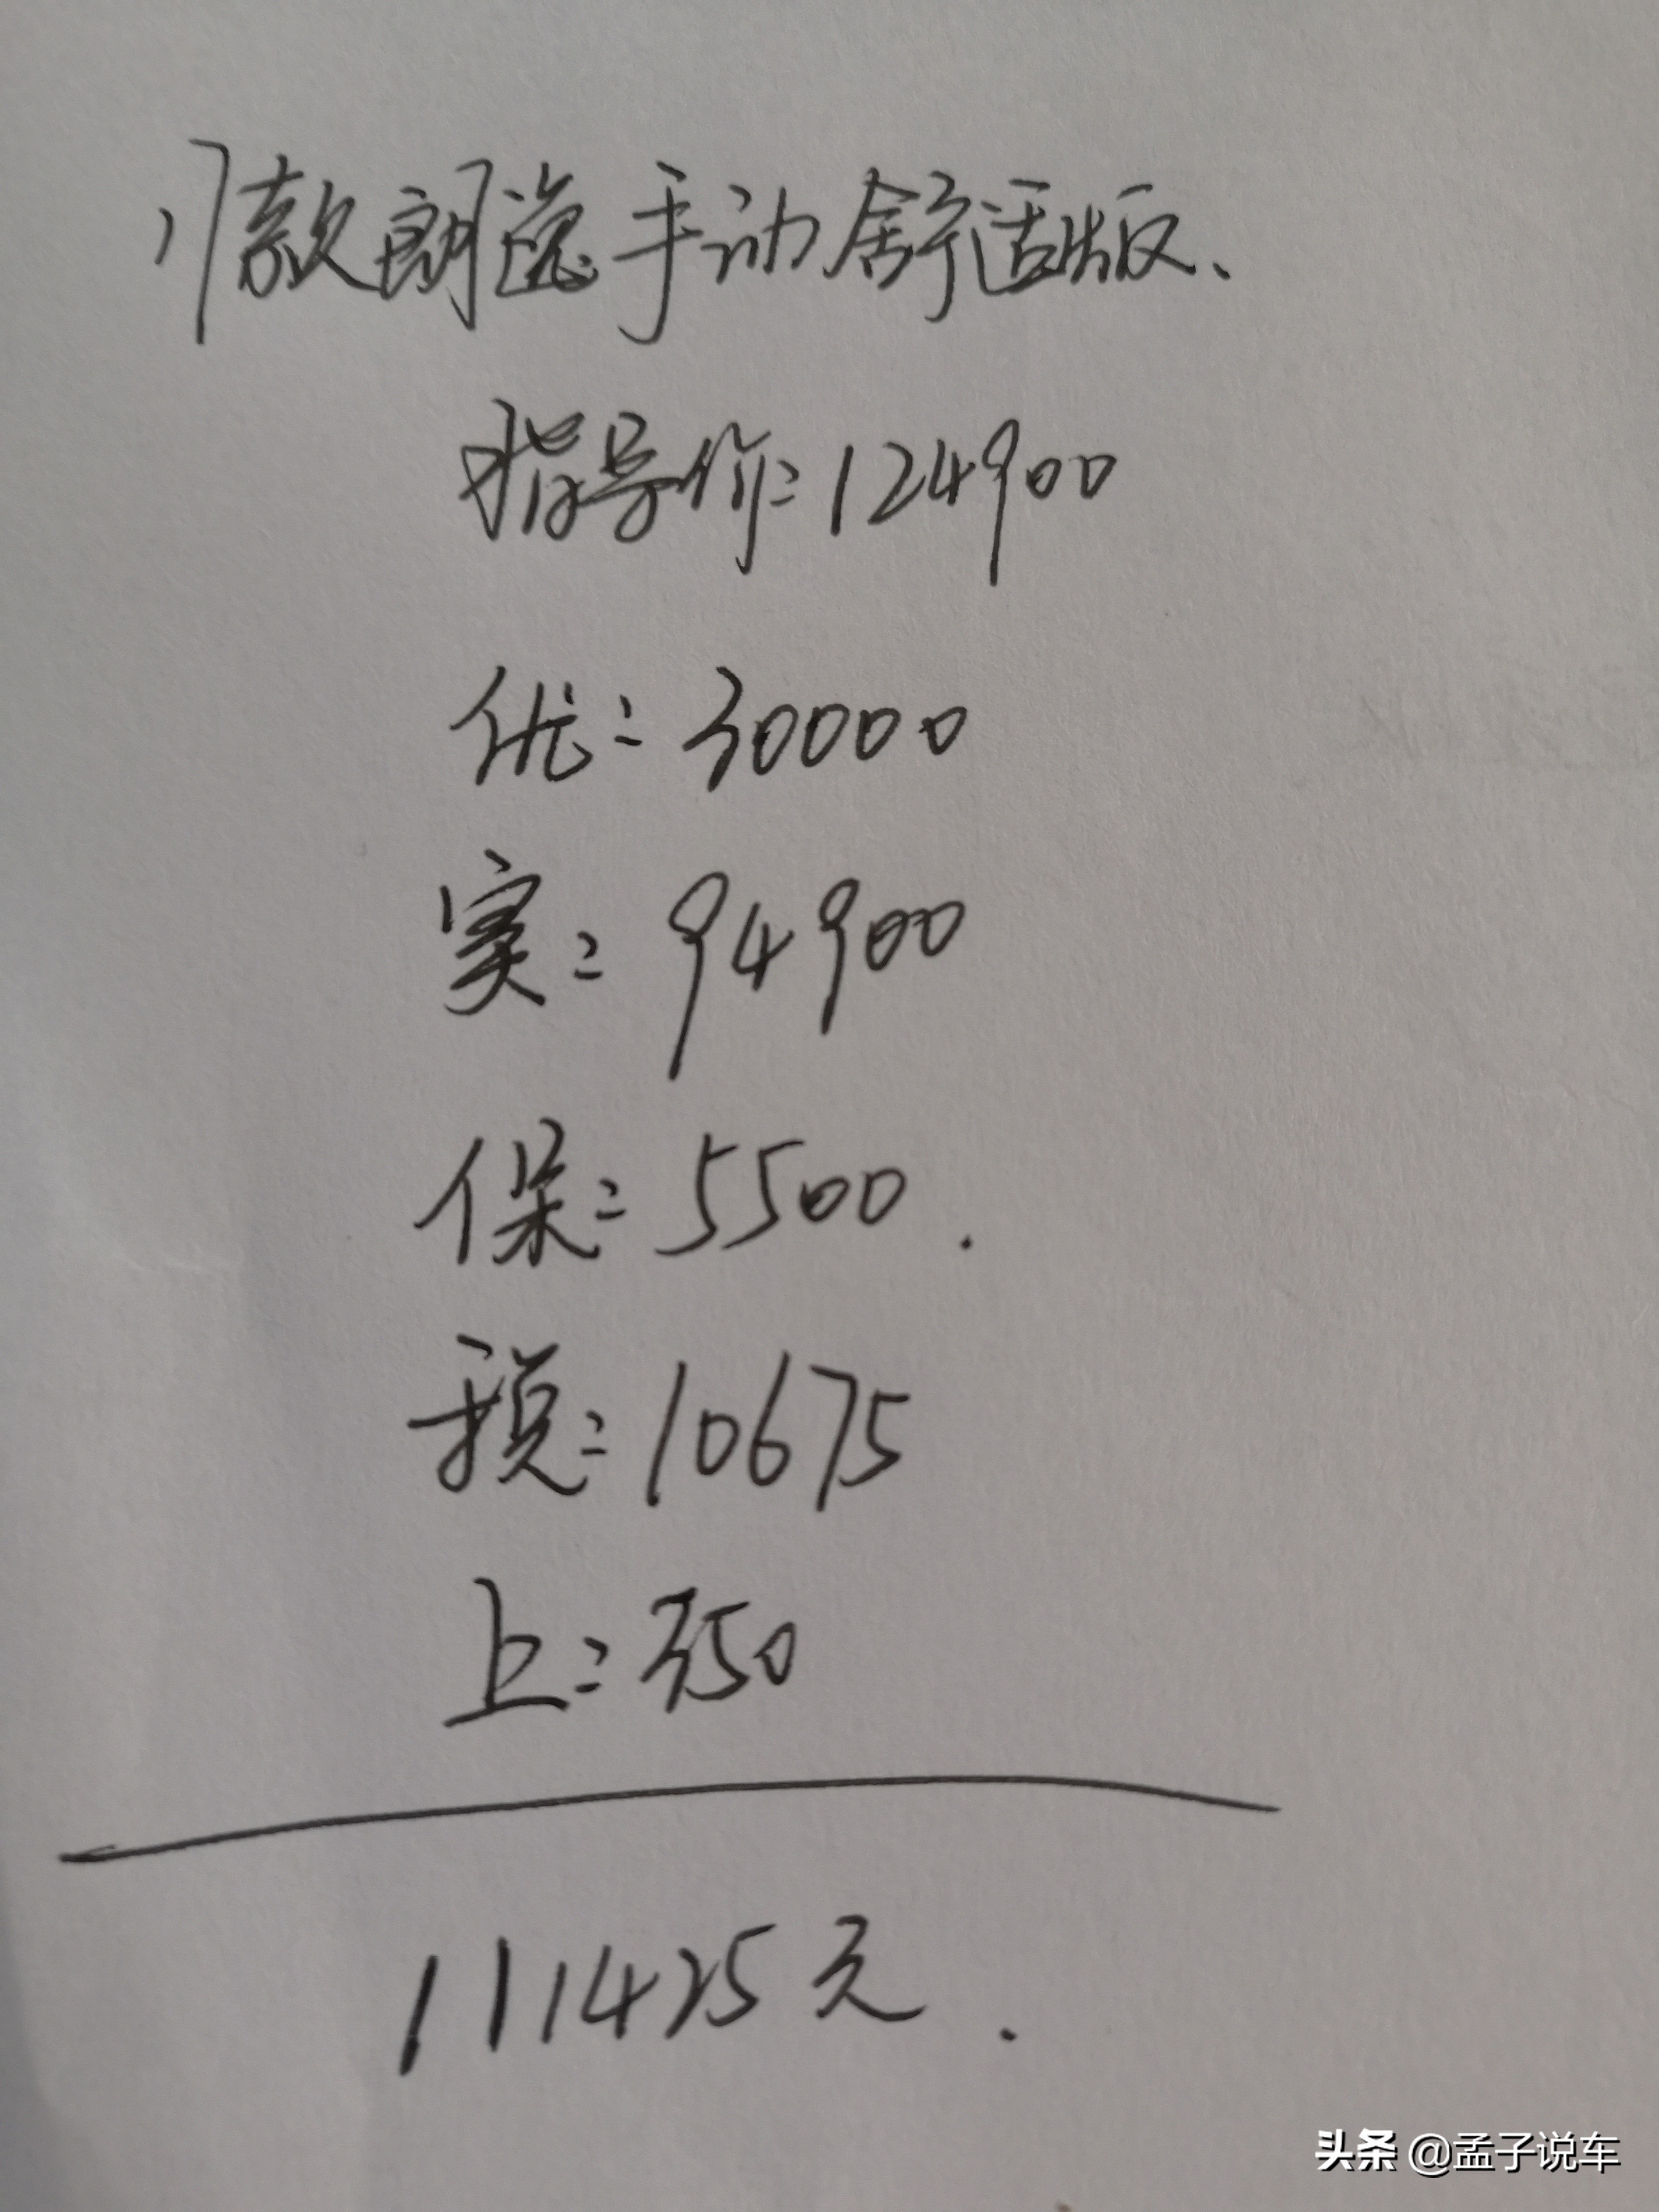 17款朗逸手动舒适版、
指导价:124900
优:30000
实:94900
保:5500.
税:10675
上:350
111425元.
头条 @孟子说车